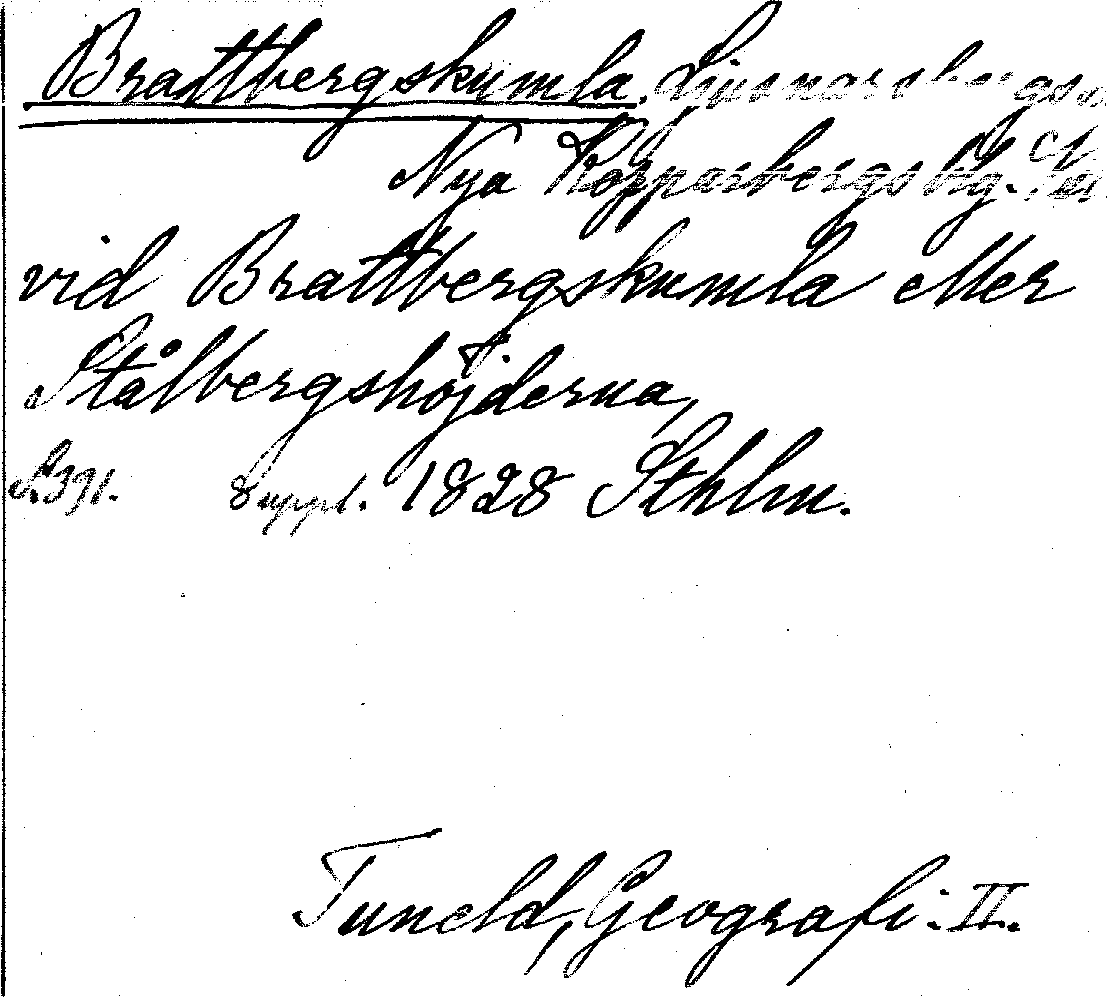 Brattbergskumla. Ljusnarsbergs
Nya Kopparbergsbg.
vid Brattbergskumla eller
Stålbergshöjderna,
S.391. Suppl. 1828 Sthlm.
Tuneld, Geografi. II.